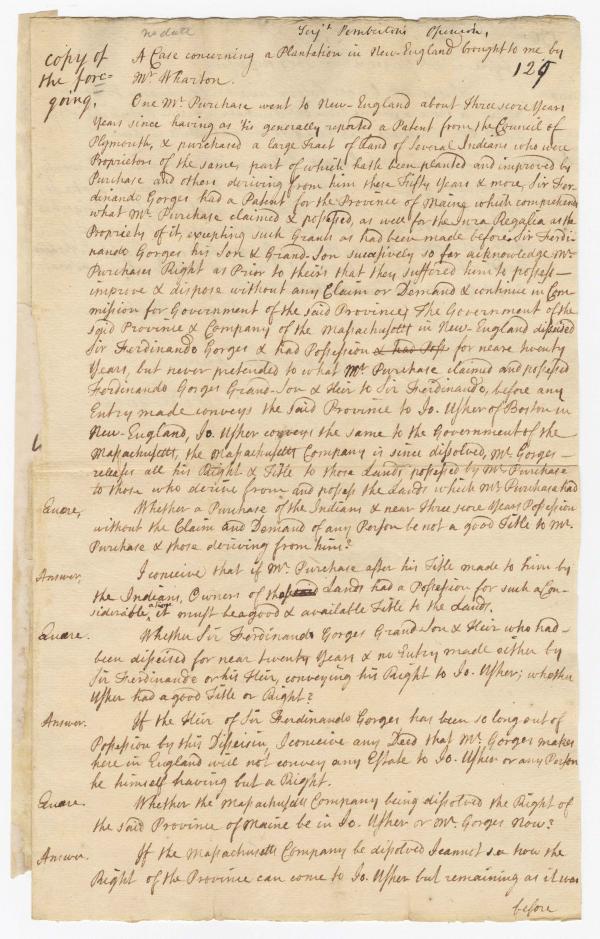 no date
Serjt Pemberton's Opinion,
copy of
the fore-
going,
A Case concerning a Plantation in New-England brought to me by
Mr Wharton.
129
One Mr Purchase went to New-England about Three score Years
Years since having as 'tis generally reported a Patent from the Council of
Plymouth, & purchased a large Tract of Land of Several Indians who were
Proprietors of the same, part of which hath been planted and improved by
Purchase and others deriving from him these Fifty Years & more, Sir Fer-
dinando Gorges had a Patent for the Province of Maine which comprehends
what Mr Purchase claimed & possessed, as well for the Jura Regalia as the
Propriety of it, excepting such Grants as had been made before. Sir Ferdi-
nando Gorges his Son & Grand-Son successively so far acknowledge Mr
Purchases Right as Prior to theirs that they suffered him to possess
improve & dispose without any Claim or Demand & continue in Com-
mission for Government of the said Province; The Government of the
said Province & Company of the Massachusetts in New-England disseised
Sir Ferdinando Gorges & had Possession & had Poss for neare twenty
Years, but never pretended to what Mr Purchase claimed and possessed
Ferdinando Gorges Grand-Son & Heir to Sir Ferdinando, before any
Entry made conveys the said Province to Jo. Usher of Boston in
New-England, Jo. Usher conveys the same to the Government of the
Massachusetts, the Massachusetts Company is since dissolved, Mr Gorges
releases all his Right & Title to those Lands possessed by Mr Purchase
to those who derive from and possess the Lands which Mr Purchase had
Quere, Whether a Purchase of the Indians & near Three score Years Possession
without the Claim and Demand of any Person be not a good Title to Mr
Purchase & those deriving from him?
Answer, I conceive that if Mr Purchase after his Title made to him by
the Indians, Owners of the Lands had a Possession for such a Con-
siderable time it must be a good & available Title to the Lands.
Quere. Whether Sir Ferdinando Gorges Grand-Son & Heir who had
been disseised for near twenty Years & no Entry made either by
Sir Ferdinando or his Heir, conveying his Right to Jo. Usher; whether
Usher had a good Title or Right?
Answer. If the Heir of Sir Ferdinando Gorges has been so long out of
Possession by this Disseisin, I conceive any Deed that Mr Gorges makes
here in England will not convey any Estate to Jo. Usher or any Person
he himself having but a Right.
Quere. Whether the Massachusetts Company being dissolved the Right of
the said Province of Maine be in Jo. Usher or Mr Gorges Now?
Answer. If the Massachusetts Company be dissolved I cannot see how the
Right of the Province can come to Jo. Usher but remaining as it was
before